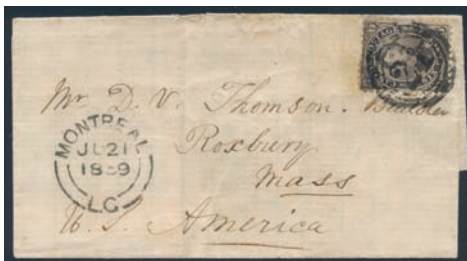 Mr. D. V. Thomson. Builder
Roxbury
Mass
U. S. America
MONTREAL
JU 21
1859
L.C.